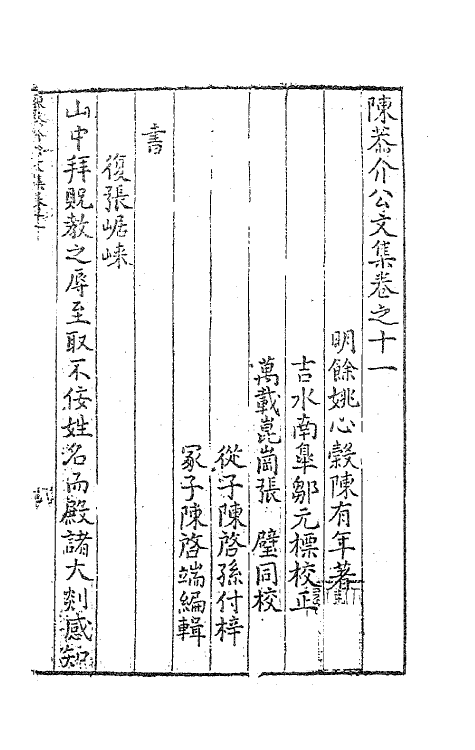 陳恭介公文集卷之十一
明餘姚心穀陳有年著
吉水南臯鄒元標校正
萬載崑崗張 璧同校
從子陳啓孫付梓
冢子陳啓端編輯
書
復張崌崍
山中拜貺教之辱至取不佞姓名而殿諸大剡感知